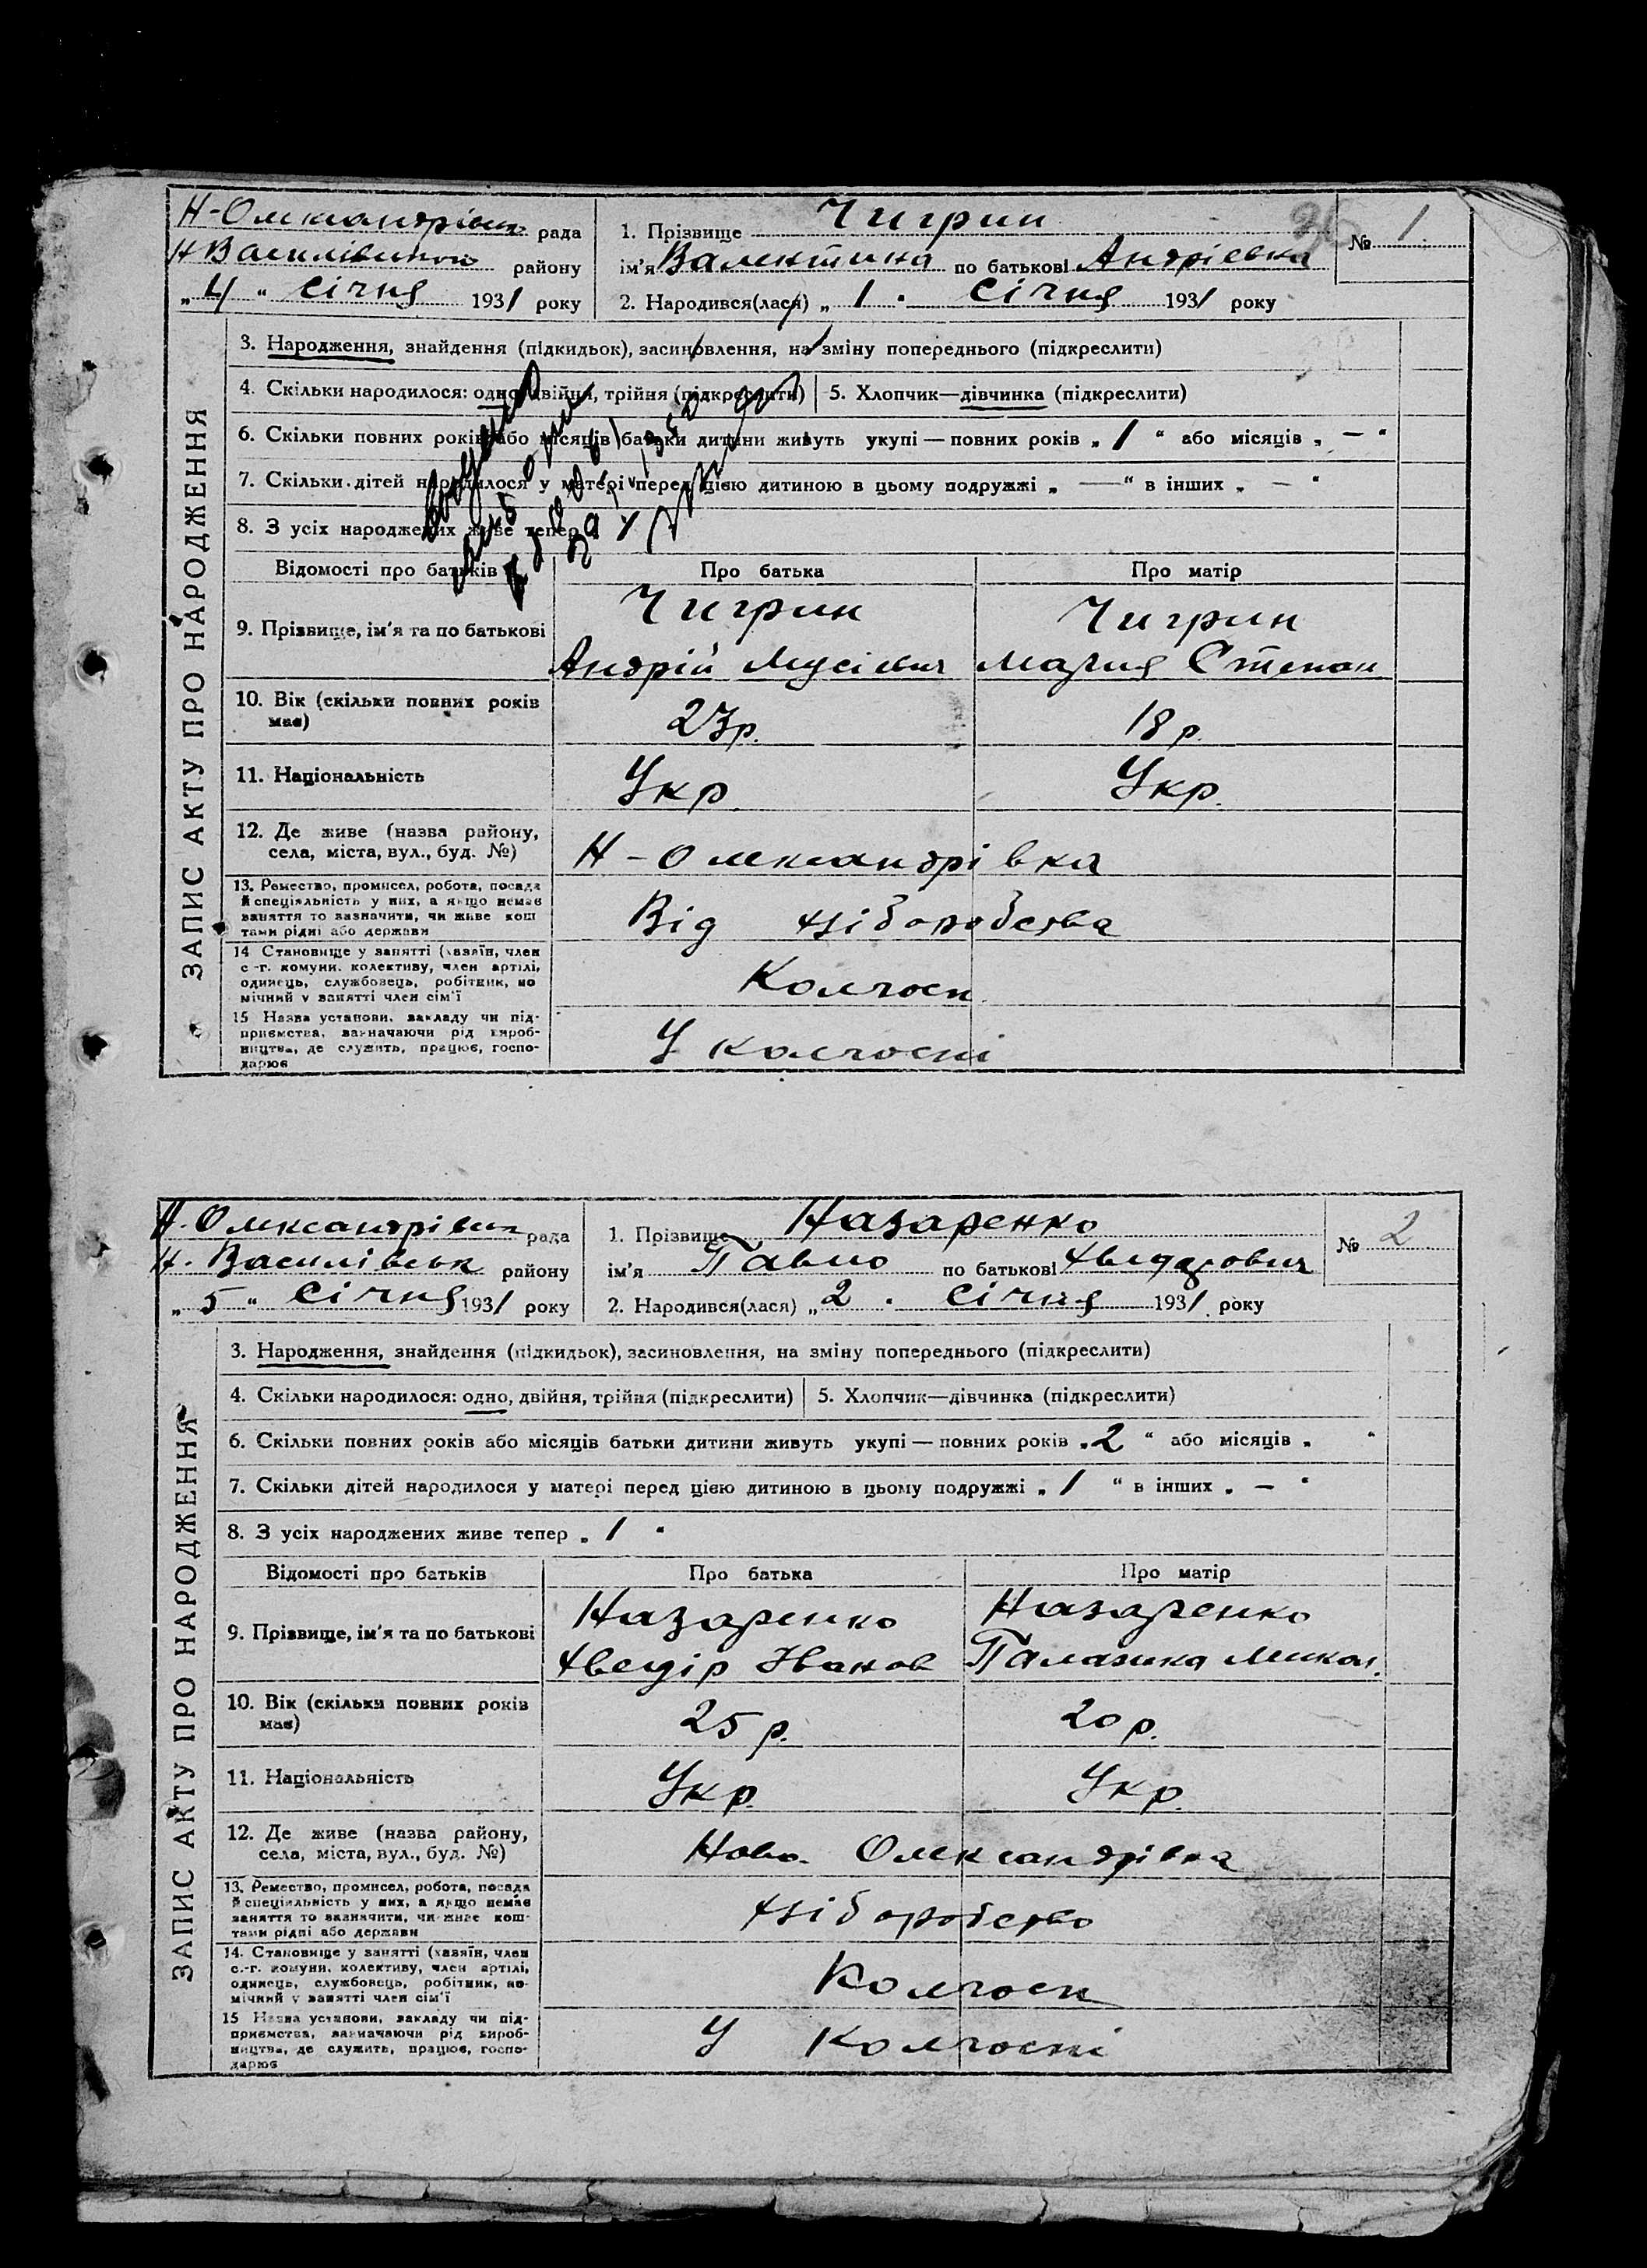 Н-Олександрівськ рада
Н Василівської району
„4“ Січня 1931 року
1. Прізвище Чигрин
ім'я Валентина по батькові Андрієвна
2. Народився(лася) „1" Січня 1931 року
№ 1
ЗАПИС АКТУ ПРО НАРОДЖЕННЯ
3. Народження, знайдення (підкидьок), засиновлення, на зміну попереднього (підкреслити)
4. Скільки народилося: одно, двійня, трійня (підкреслити) 5. Хлопчик—дівчинка (підкреслити)
6. Скільки повних років або місяців батьки дитини живуть укупі — повних років „1“ або місяців „—"
7. Скільки дітей народилося у матері перед цією дитиною в цьому подружжі „—“ в інших „—"
8. З усіх народжених живе тепер
Відомості про батьків Про батька Про матір
9. Прізвище, ім'я та по батькові
Чигрин Чигрин
Андрій Мусієвич Мария Степан
10. Вік (скільки повних років має)
23р. 18 р.
11. Національність Укр. Укр.
12. Де живе (назва району,
села, міста, вул., буд. №) Н-Олександрівка
13. Ремество, промисел, робота, посада
й спеціяльність у них, а якщо немає
заняття то зазначити, чи живе кош
тами рідні або держави
Від хліборобства
14 Становище у занятті (хазяїн, член
с-г. комуни. колективу, член артілі,
одинець, службовець, робітник, по
мічний у занятті член сім'ї
Колгосп
15 Назва установи, закладу чи під-
приємства, зазначаючи рід вироб-
ництва, де служить, працює, госпо-
дарює
У колгоспі
Н. Олександрівськ рада
Н. Василівськ району
„5“ Січня 1931 року
1. Прізвище Назаренко
ім'я Павло по батькові Хведорович
2. Народився(лася) „2" Січня 1931 року
№ 2
ЗАПИС АКТУ ПРО НАРОДЖЕННЯ
3. Народження, знайдення (підкидьок), засиновлення, на зміну попереднього (підкреслити)
4. Скільки народилося: одно, двійня, трійня (підкреслити) 5. Хлопчик—дівчинка (підкреслити)
6. Скільки повних років або місяців батьки дитини живуть укупі — повних років „2“ або місяців „ "
7. Скільки дітей народилося у матері перед цією дитиною в цьому подружжі „1“ в інших „—"
8. З усіх народжених живе тепер „1"
Відомості про батьків Про батька Про матір
9. Прізвище, ім'я та по батькові
Назаренко Назаренко
Хведір Іванов Палажка Микол.
10. Вік (скільки повних років має)
25 р. 20 р.
11. Національність Укр. Укр.
12. Де живе (назва району,
села, міста, вул., буд. №) Ново-Олександрівка
13. Ремество, промисел, робота, посада
й спеціяльність у них, а якщо немає
заняття то зазначити, чи живе кош-
тами рідні або держави
хліборобство
14. Становище у занятті (хазяїн, член
с.-г. комуни, колективу, член артілі,
одинець, службовець, робітник, по-
мічний у занятті член сім'ї
Колгосп
15 Назва установи, закладу чи під-
приємства, зазначаючи рід вироб-
ництва, де служить, працює, госпо-
дарює
У Колгоспі